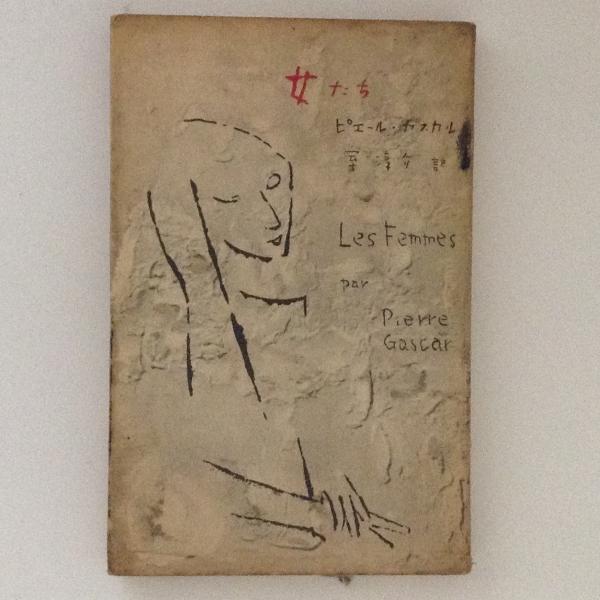 女たち
ピエール・ガスカル
室 淳介 訳
Les Femmes
par
Pierre
Gascar